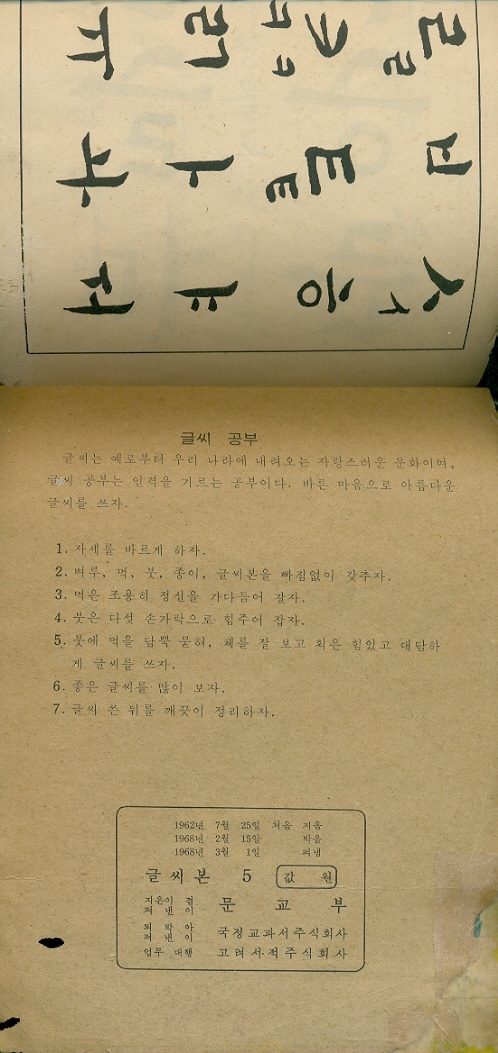 글씨 공부
글씨는 예로부터 우리 나라에 내려오는 자랑스러운 문화이며,
글씨 공부는 인격을 기르는 공부이다. 바른 마음으로 아름다운
글씨를 쓰자.
1. 자세를 바르게 하자.
2. 벼루, 먹, 붓, 종이, 글씨본을 빠짐없이 갖추자.
3. 먹은 조용히 정신을 가다듬어 갈자.
4. 붓은 다섯 손가락으로 힘주어 잡자.
5. 붓에 먹을 담뿍 묻혀, 체를 잘 보고 획은 힘있고 대담하
게 글씨를 쓰자.
6. 좋은 글씨를 많이 보자.
7. 글씨 쓴 뒤를 깨끗이 정리하자.
1962년 7월 25일 처음 지음
1968년 2월 15일 박음
1968년 3월 1일 펴냄
글씨본 5 값 원
지은이 겸
펴낸이 문교부
되박아
펴낸이 국정교과서주식회사
업무 대행 고려서적주식회사